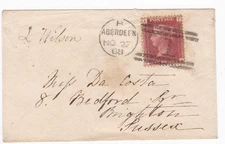 J. Wilson
H
ABERDEEN
NO 27
68
Miss Da Costa
8. Bedford Sqr
Brighton
Sussex